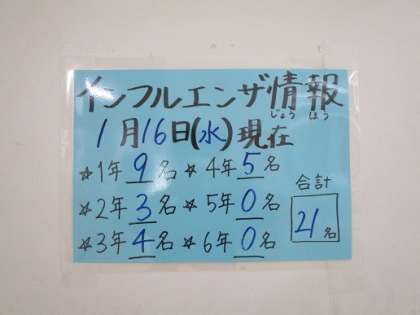 インフルエンザ情報
じょう ほう
1月16日(水)現在
☆1年 9名 ☆4年 5名
☆2年 3名 ☆5年 0名
☆3年 4名 ☆6年 0名
合計
21名